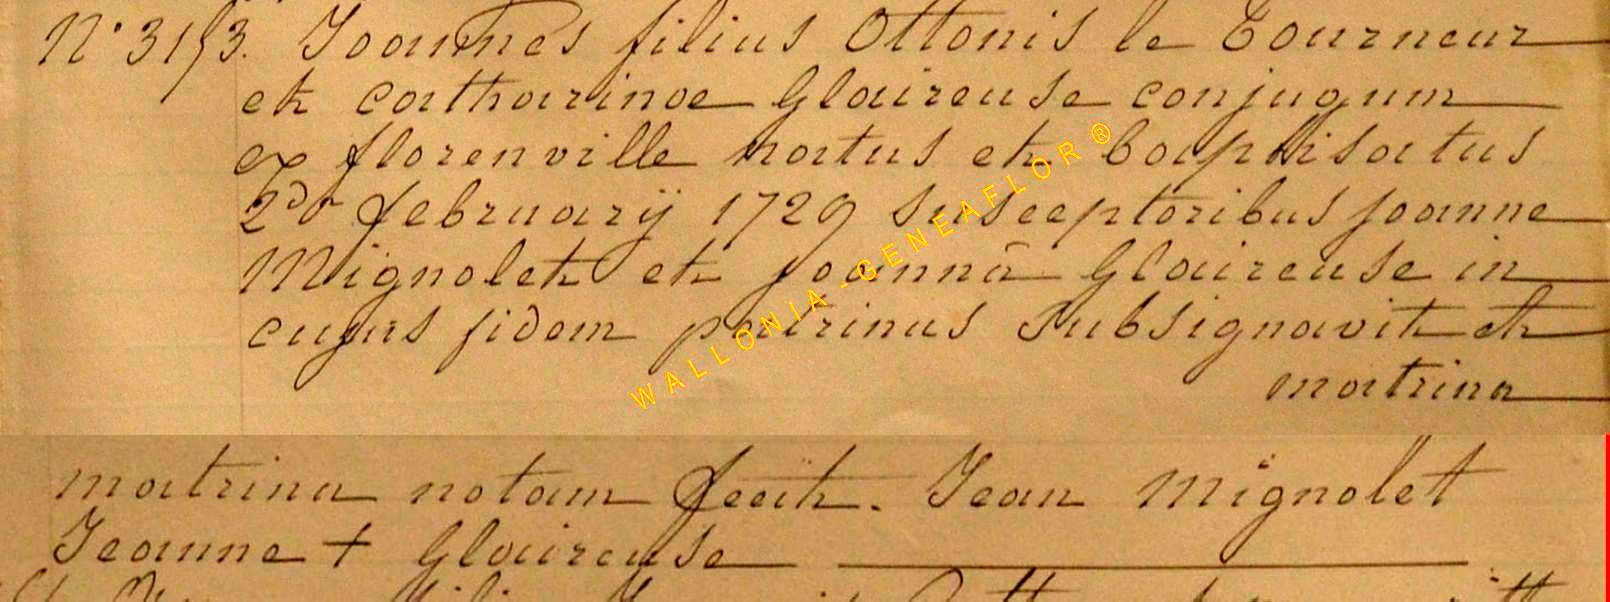 N° 3153. Joannes filius Ottonis le Tourneur
et catharinae Glaireuse conjugum
ex florenville natus et baptisatus
2da februarÿ 1729 susceptoribus joanne
Mignolet et joannâ Glaireuse in
cujus fidem patrinus subsignavit et
matrina
matrina notam fecit. Jean Mignolet
Jeanne + Glaireuse
WALLONIA - GENEAFLOR ®